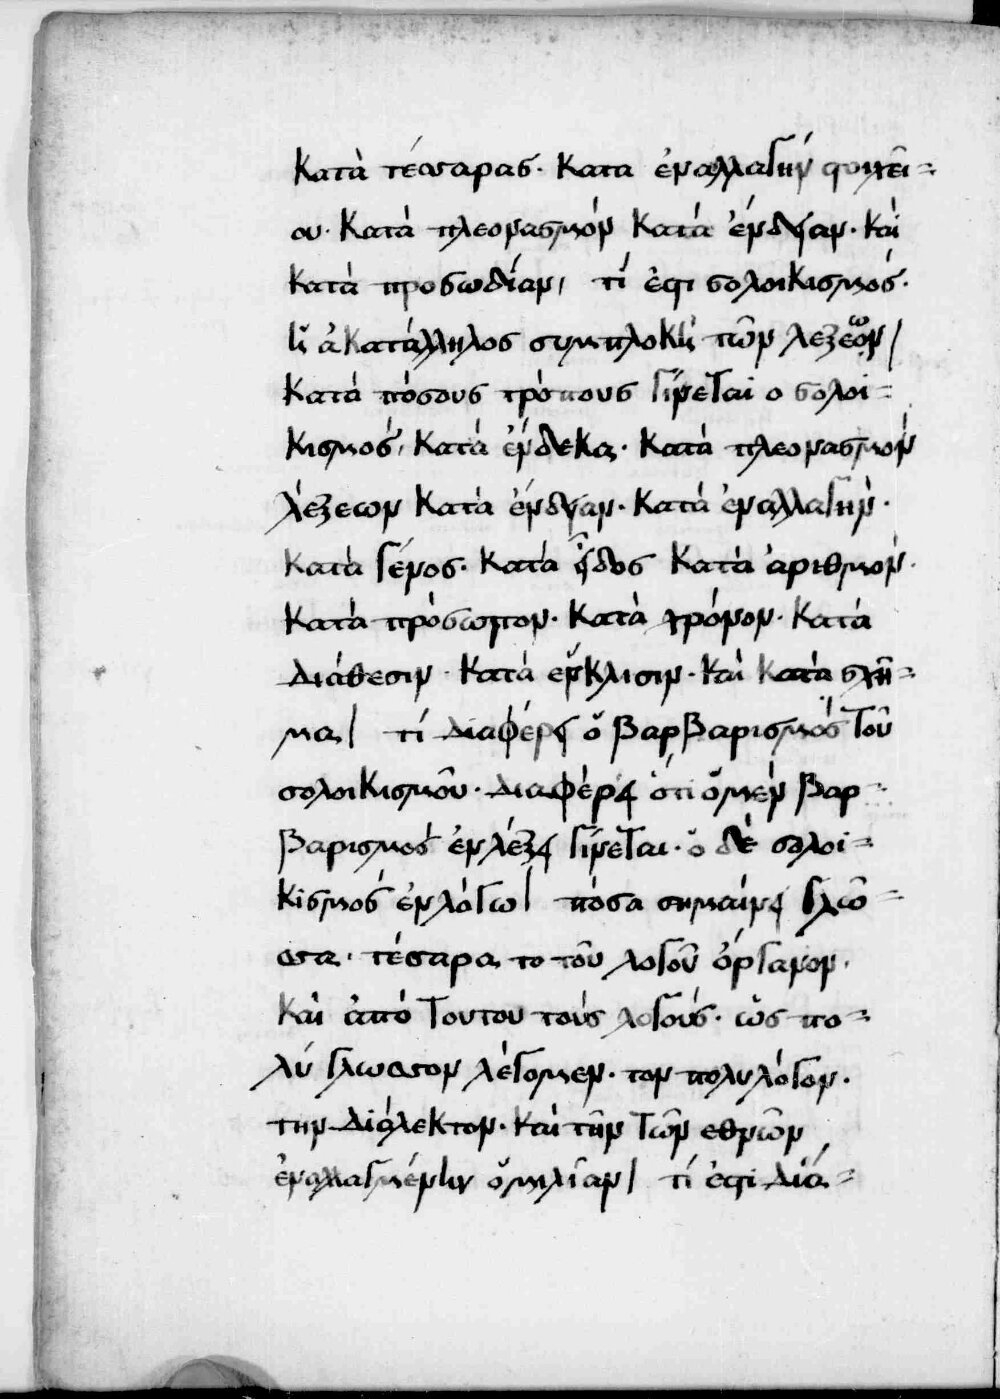 κατὰ τέσσαρας· κατα ἐναλλαγήν στοιχεῖ=
ου· κατά πλεονασμόν κατά ἐνδειαν· καί
κατά προσωδίαν, τί ἐστι σολοικισμός·
ἡ ἀκατάλληλος συμπλοκή τῶν λεξεων /
κατά πόσους τρόπους γίνεται ο σολοι=
κισμός, κατά ἐνδεκα· κατά πλεονασμόν
λέξεων κατά ἐνδειαν· κατά ἐναλλαγήν·
κατά γένος· κατά εἶδος κατά ἀριθμόν·
κατά πρόσωπον· κατά χρόνον· κατά
διάθεσιν· κατά εὔκλισιν· καί κατά σχῆ=
μα / τί διαφέρει ὁ βαρβαρισμός τοῦ
σολοικισμοῦ· διαφέρει ὁτι ὁ μεν βαρ=
βαρισμος ἐν λέξει γίνεται· ὁ δὲ σολοι=
κισμός ἐν λόγω / πόσα σημαίνει γλῶ=
σσα· τέσσαρα, το τοῦ λογοῦ ὀργανον·
καί ἀπό τουτου τούς λογούς· ὡς πο=
λύ γλωσσον λέγομεν· τον πολυλόγον·
την διάλεκτον· καί τῆν τῶν εθνῶν
ἐναλλαγμένην ὁμιλίαν / τί ἐστι διά=